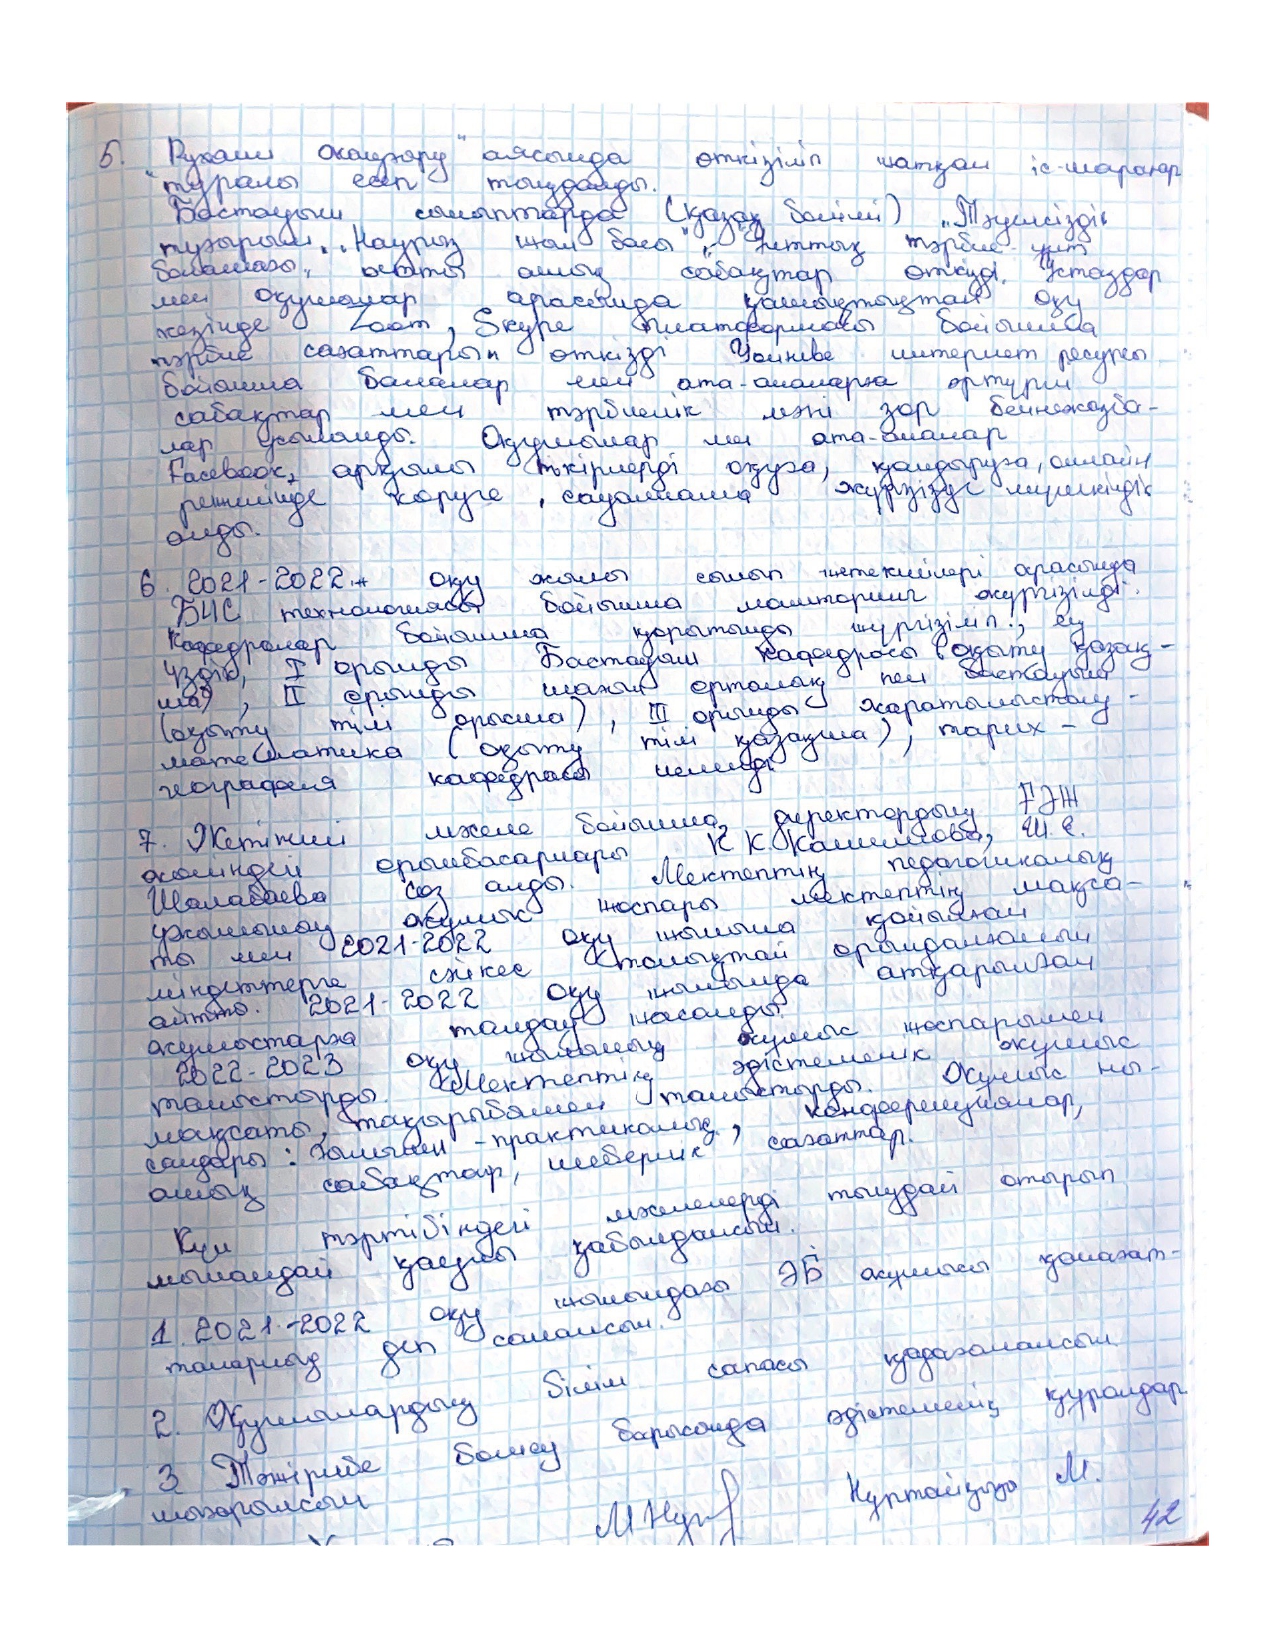 5. "Рухани жаңғыру" аясында өткізіліп жатқан іс-шаралар
туралы есеп тыңдалды.
Бастауыш сыныптарда (қазақ бөлімі) "Тәуелсіздік
тұғырым", "Наурыз жыл басы", "Ұлттық тәрбие - ұлт
болашағы" атты ашық сабақтар өткізді. Ұстаздар
мен оқушылар арасында қашықтықтан оқу
кезінде Zoom, Skype платформасы бойынша
тәрбие сағаттарын өткізді интернет ресурсы
бойынша балалар мен ата-аналарға әртүрлі
сабақтар мен тәрбиелік мәні зор бейнежазба-
лар ұсынылды. Оқушылар мен ата-аналар
Facebook, арқылы пікірлерді оқуға, қалдыруға, онлайн
режимінде көруге, сауалнама жүргізуге мүмкіндік
алды.
6. 2021-2022 оқу жылы сынып жетекшілері арасында
БЧС технологиясы бойынша мониторинг жүргізілді.
Кафедралар бойынша қорытынды жүргізіліп, ең
үздік, I орынды Бастауыш кафедрасы (оқыту қазақ-
ша), II орынды шағын орталық пен бастауыш
(оқыту тілі орысша), III орынды жаратылыстану -
математика (оқыту тілі қазақша), тарих -
география кафедрасы иеленді
7. Жетінші мәселе бойынша директордың
жөніндегі орынбасарлары К.К. Калимова, Ш.Е.
Шалабаева сөз алды. Мектептің педагогикалық
ұжымының жұмыс жоспары мектептің мақса-
ты мен 2021-2022 оқу жылына қойылған
міндеттерге сәйкес толықтай орындалғанын
айтты. 2021-2022 оқу жылында атқарылған
жұмыстарға талдау жасалды.
2022-2023 оқу жылының жұмыс жоспарымен
таныстырды. Мектептің әдістемелік жұмыс
мақсаты, тақырыбымен таныстырды. Жұмыс ны-
сандары: ғылыми-практикалық, конференциялар,
ашық сабақтар, шеберлік сағаттар.
Күн тәртібіндегі мәселелерді тыңдай отырып
мынандай қаулы қабылдансын.
1. 2021-2022 оқу жылындағы ӘБ жұмысы қанағат-
танарлық деп саналсын.
2. Оқушылардың білім сапасы қадағалансын
3. Тәжірибе бөлісу барысында әдістемелік құралдар
шығарылсын
Нұртайқызы М.
42